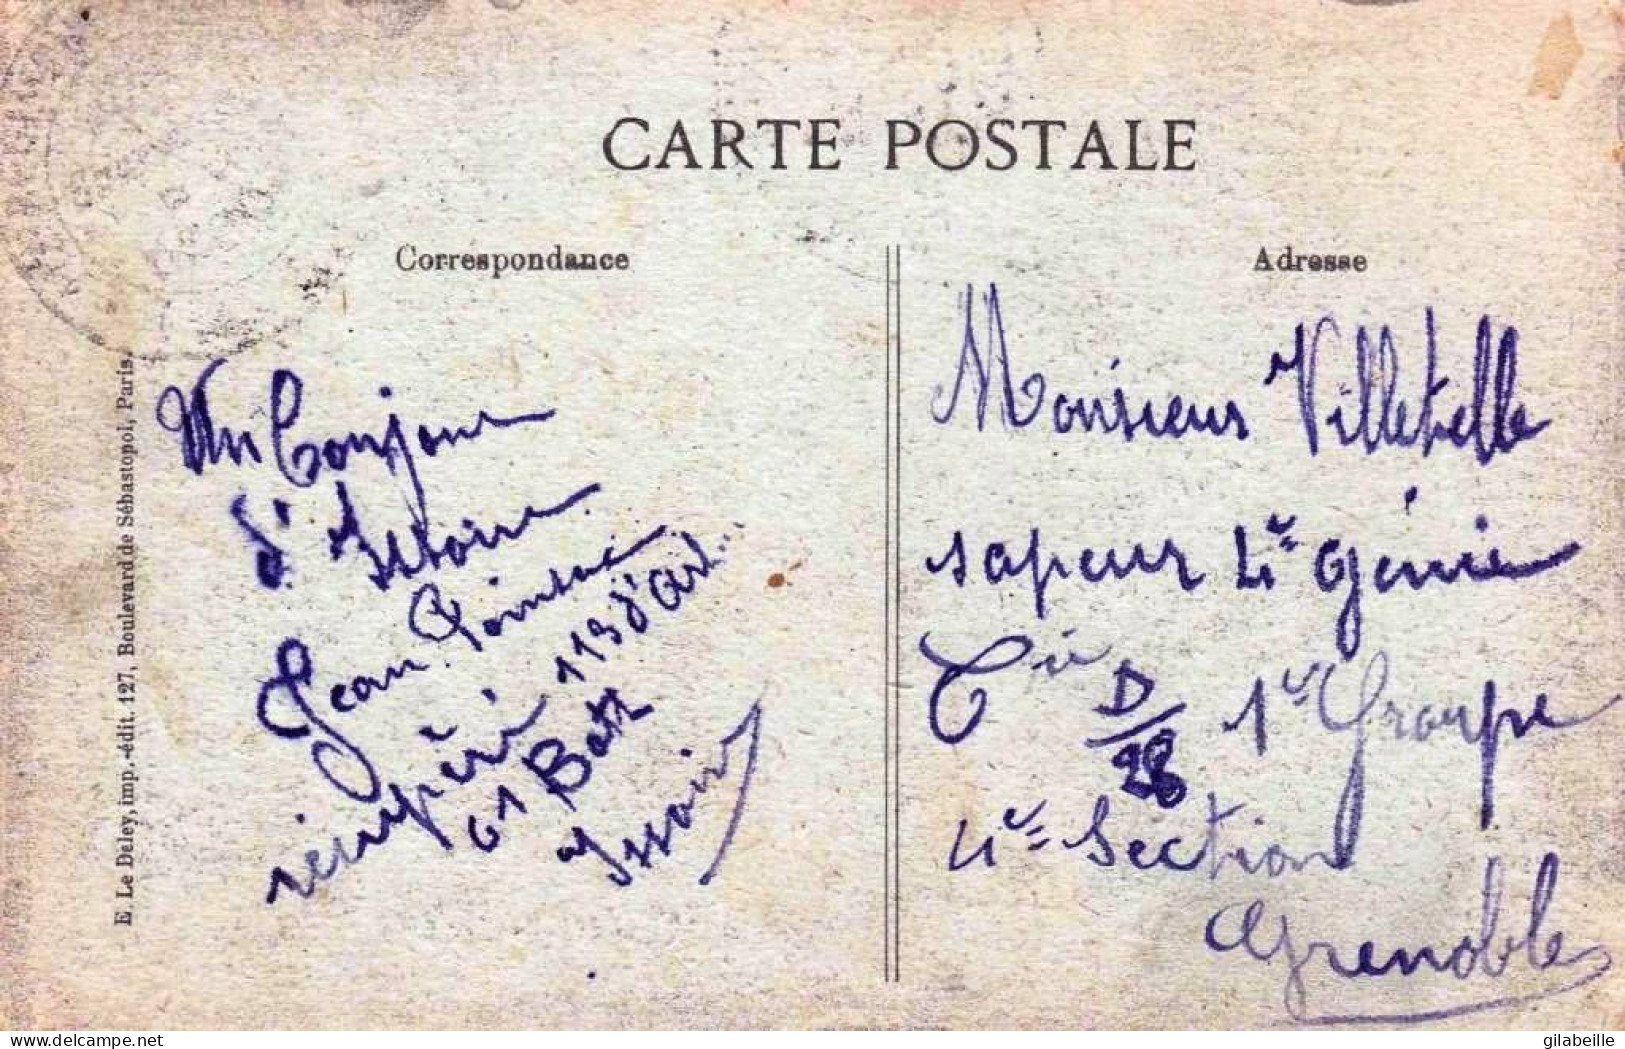 CARTE POSTALE
Correspondance
Adresse
E. Le Deley, imp.-édit. 127, Boulevard de Sébastopol, Paris.
Un Bonjour
d'Issoire
Jean
113 d'Art..
61 Batt
Issoire
Monsieur Villetelle
sapeur 4e Génie
Cie D/28 1er Groupe
4e Section
Grenoble
www.delcampe.net
gilabeille